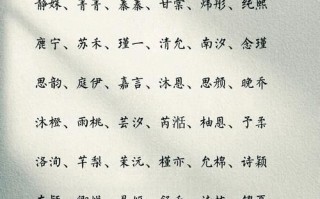 静姝、菁菁、蓁蓁、甘棠、炜彤、纯熙
鹿宁、苏禾、瑾一、清允、南汐、念瑾
思韵、庭伊、嘉言、沐恩、思颜、晚乔
沐橙、雨桃、芸汐、芮湉、柚恩、予柔
洛洵、芊梨、茉沅、槿亦、允棉、诗颖